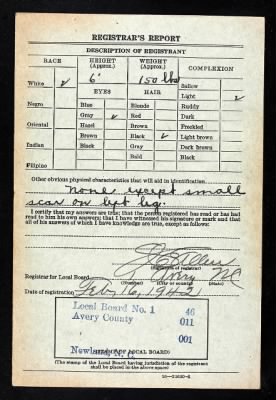 REGISTRAR'S REPORT
DESCRIPTION OF REGISTRANT
RACE HEIGHT (Approx.) WEIGHT (Approx.) COMPLEXION
White ✓ 6' 150 lbs Sallow
Light ✓
EYES HAIR
Negro Blue Blonde Ruddy
Gray ✓ Red Dark
Oriental Hazel Brown Freckled
Brown Black ✓ Light brown
Indian Black Gray Dark brown
Bald Black
Filipino
Other obvious physical characteristics that will aid in identification
none except small
scar on left leg.
I certify that my answers are true; that the person registered has read or has had
read to him his own answers; that I have witnessed his signature or mark and that
all of his answers of which I have knowledge are true, except as follows:
(Signature of registrar)
Registrar for Local Board Avery NC
(Number) (City or county) (State)
Date of registration Feb 16, 1942
Local Board No. 1 46
Avery County 011
001
Newland, N. C.
(STAMP OF LOCAL BOARD)
(The stamp of the Local Board having jurisdiction of the registrant
shall be placed in the above space)